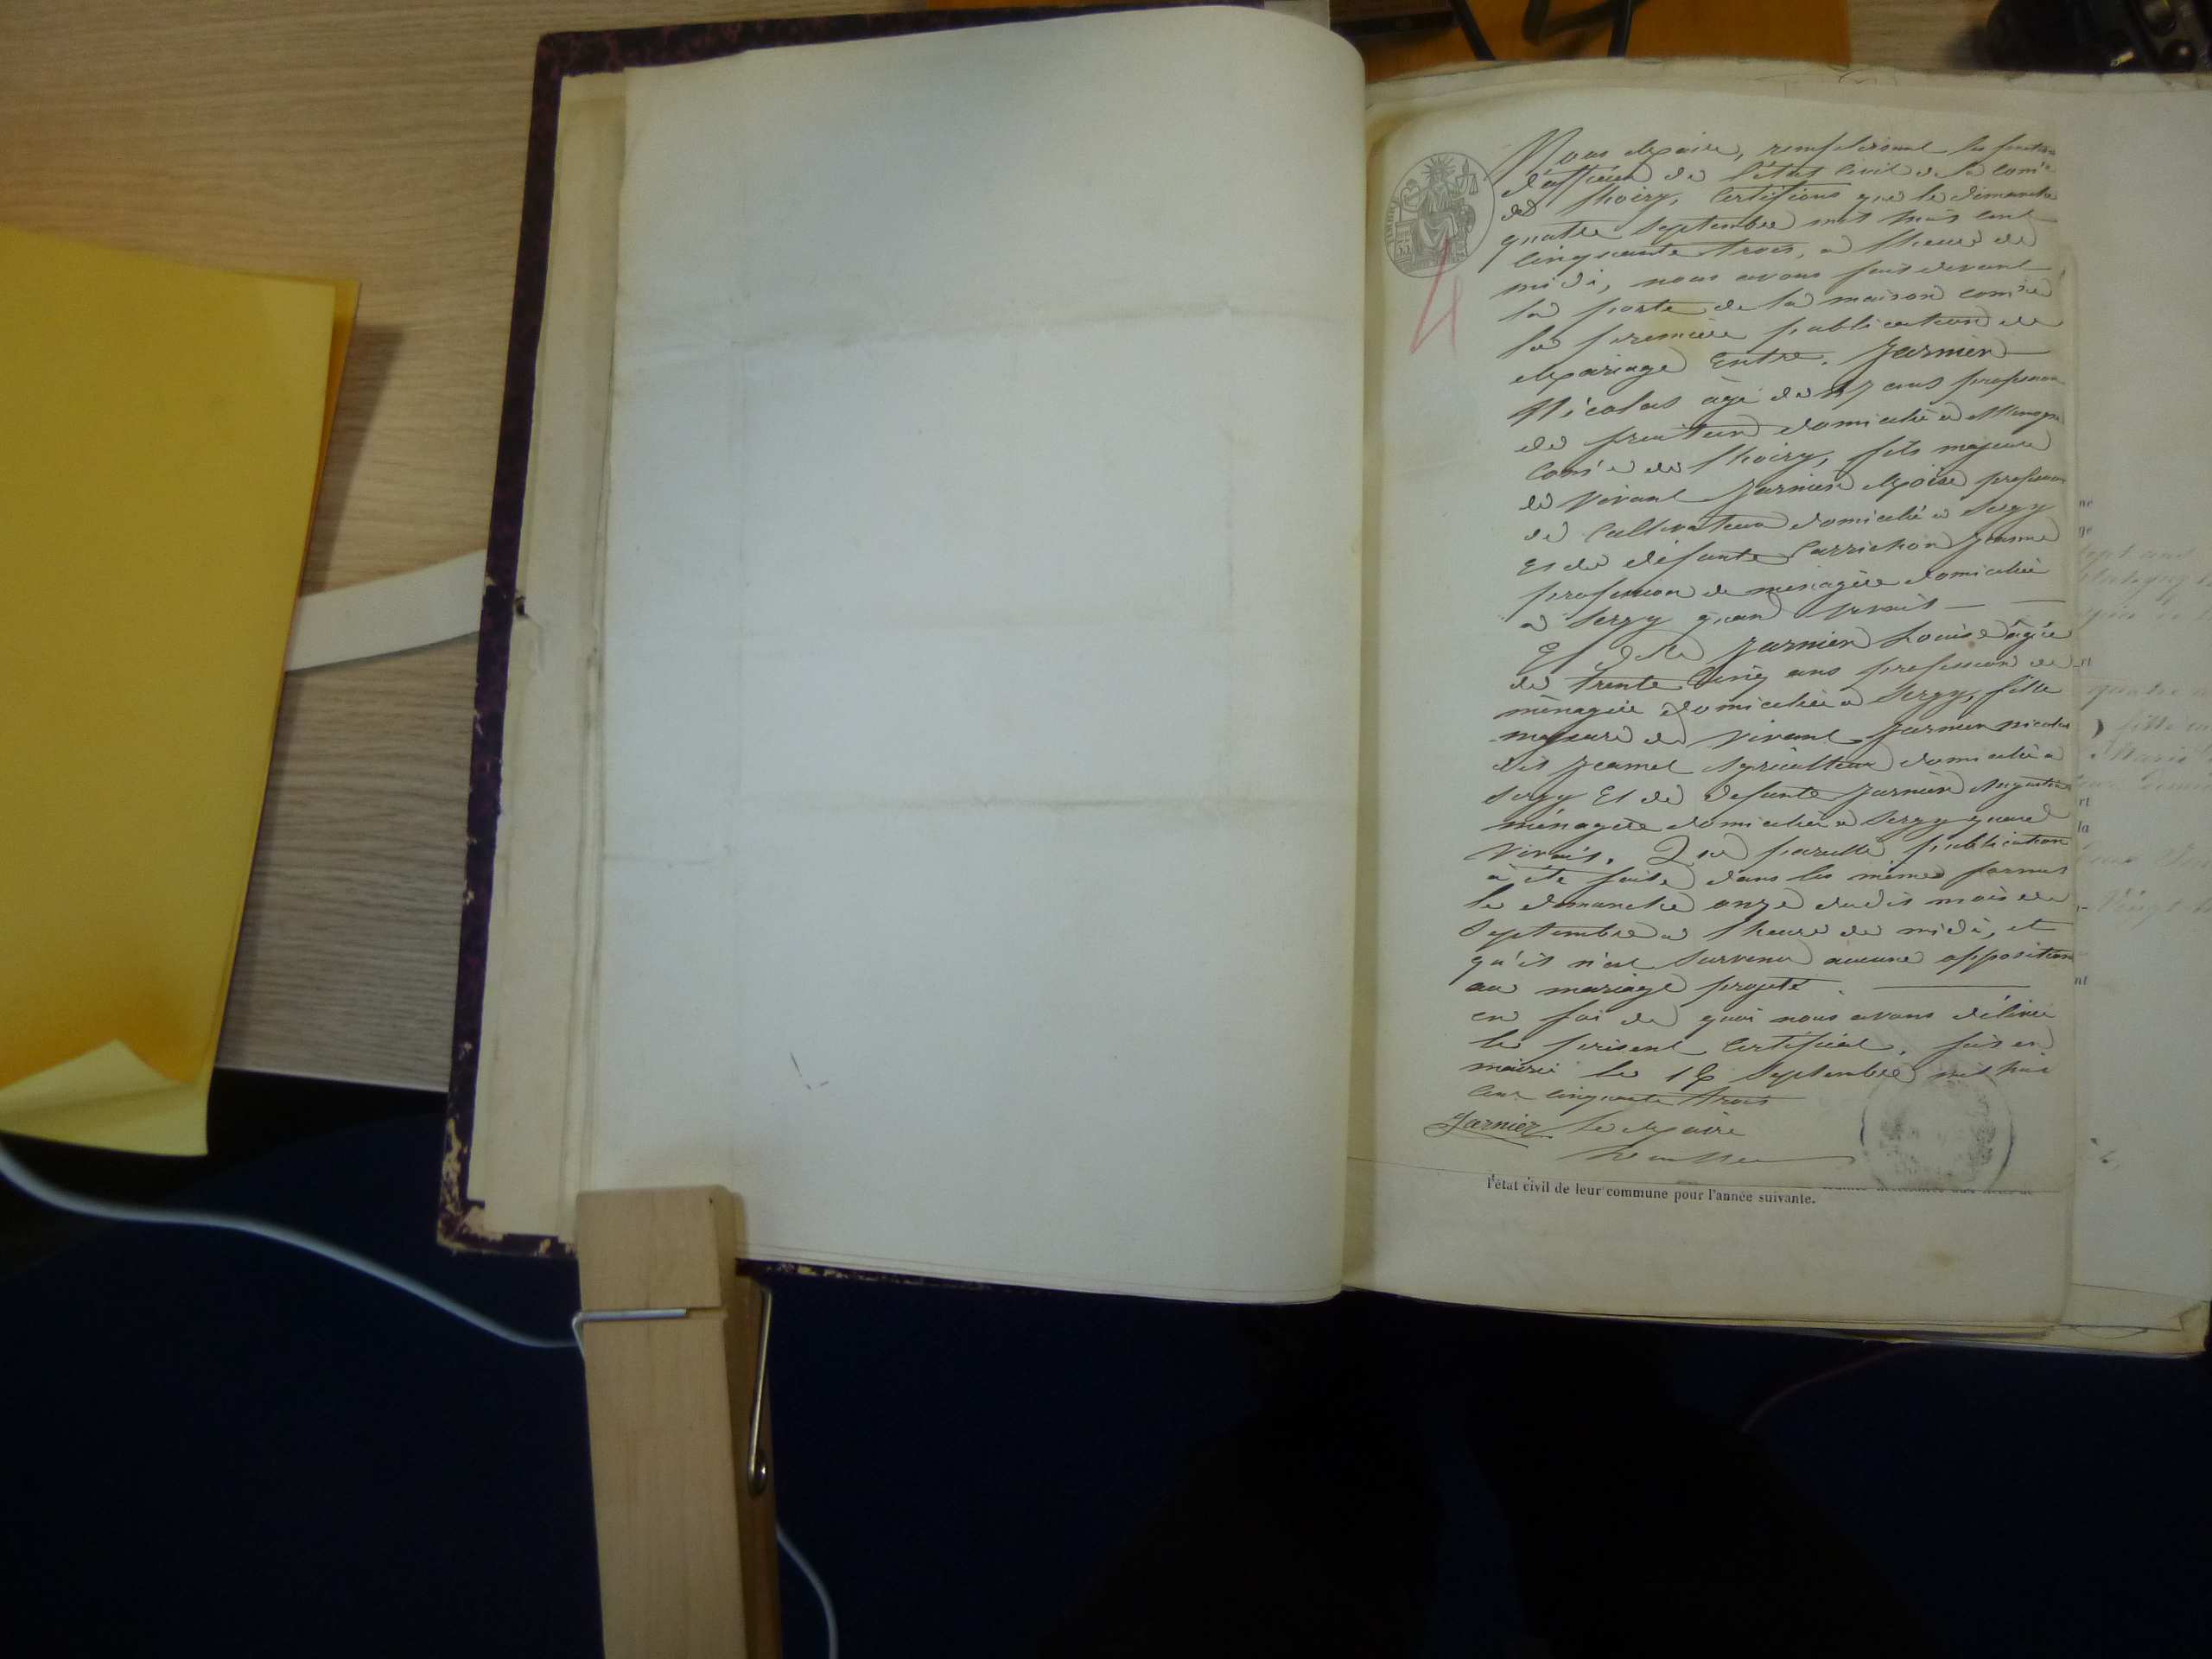 Nous Maire, remplissant les fonctions
d'officier de l'état civil de la com.ne
de Thoiry, Certifions que le dimanche
quatre Septembre mil huit cent
cinquante trois, a l'heure de
midi, nous avons fait devant
la porte de la maison com.ne
la première publication de
Mariage Entre. Garnier
Nicolas agé de 47 ans profession
de fruitier domicilié a
Com.ne de Thoiry, fils majeur
de vivant Garnier Moïse profession
de Cultivateur domicilié a Sergy
Et de défunte Carrichon Jeanne
profession de menagère domiciliée
a Sergy quand vivait
Et de Garnier Louise agée
de trente cinq ans profession de
ménagère domiciliée a Sergy, fille
majeure de vivant Garnier Nicolas
dit Jeamet Agriculteur domicilié a
Sergy Et de défunte Garnier
ménagère domiciliée a Sergy quand
vivait. Que pareille publication
a été faite dans les mêmes formes
le dimanche onze dudit mois de
Septembre a l'heure de midi, et
qu'il n'est survenu aucune opposition
au mariage projeté.
en foi de quoi nous avons délivré
le présent Certificat, fait en
mairie le Septembre mil huit
cent cinquante trois
Garnier le Maire
l'état civil de leur commune pour l'année suivante.